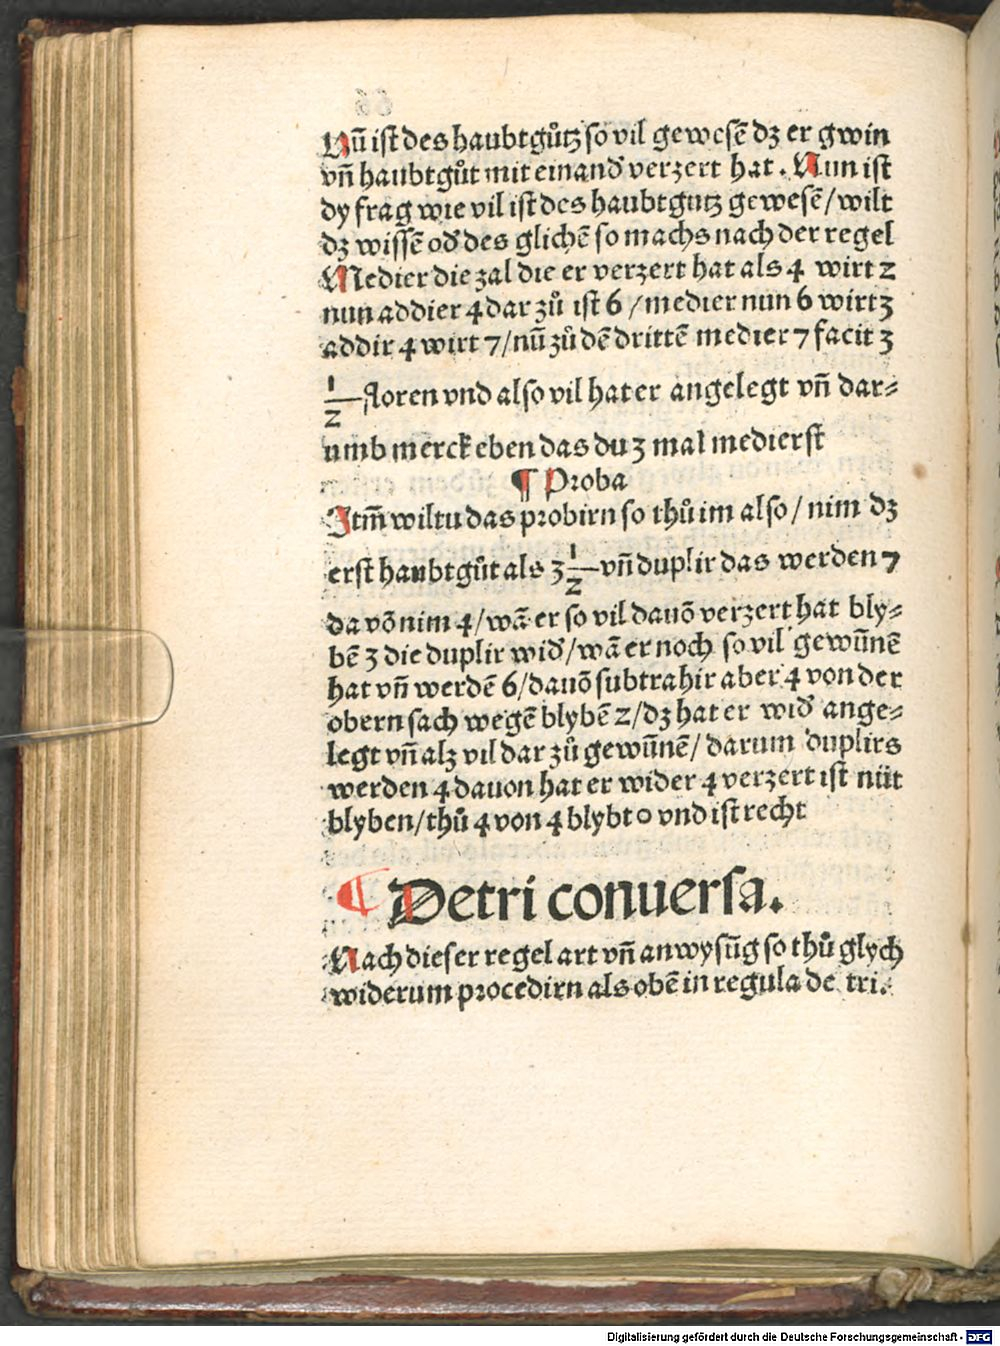 Nū ist des haubtgůtz so vil gewesē dz er gwin
vn̄ haubtgůt mit einand verzert hat. Nun ist
dy frag wie vil ist des haubtgutz gewesē/wilt
dz wissē od des glichē so machs nach der regel
Medier die zal die er verzert hat als 4 wirt 2
nun addier 4 dar zů ist 6 / medier nun 6 wirt 3
addir 4 wirt 7/nū zů dē drittē medier 7 facit 3
1/2 floren vnd also vil hat er angelegt vn̄ dar⸗
umb merck eben das du 3 mal medierst
¶ Proba
Itm̄ wiltu das probirn so thů im also / nim dz
erst haubtgůt als 3 1/2 vn̄ duplir das werden 7
da vō nim 4/wā er so vil dauō verzert hat bly⸗
bē 3 die duplir wid/wā er noch so vil gewūnē
hat vn̄ werdē 6/dauō subtrahir aber 4 von der
obern sach wegē blybē 2/dz hat er wid ange⸗
legt vn̄ alz vil dar zů gewūnē/ darum duplirs
werden 4 dauon hat er wider 4 verzert ist nüt
blyben/thů 4 von 4 blybt 0 vnd ist recht
¶ Detri conuersa.
Nach dieser regel art vn̄ anwysūg so thů glych
widerum procedirn als obē in regula de tri.
Digitalisierung gefördert durch die Deutsche Forschungsgemeinschaft - DFG